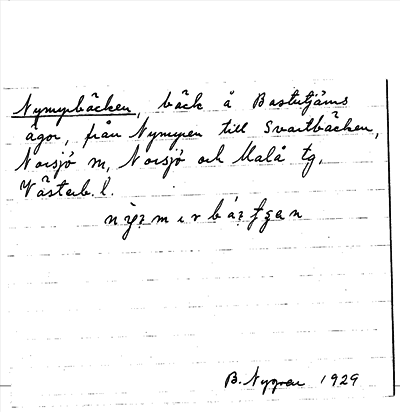 Nymyrbäcken, bäck å Bastutjäms
ägor, från Nymyren till Svartbäcken,
Norsjö sn, Norsjö och Malå tg.
Västerb. l.
B. Nygren 1929